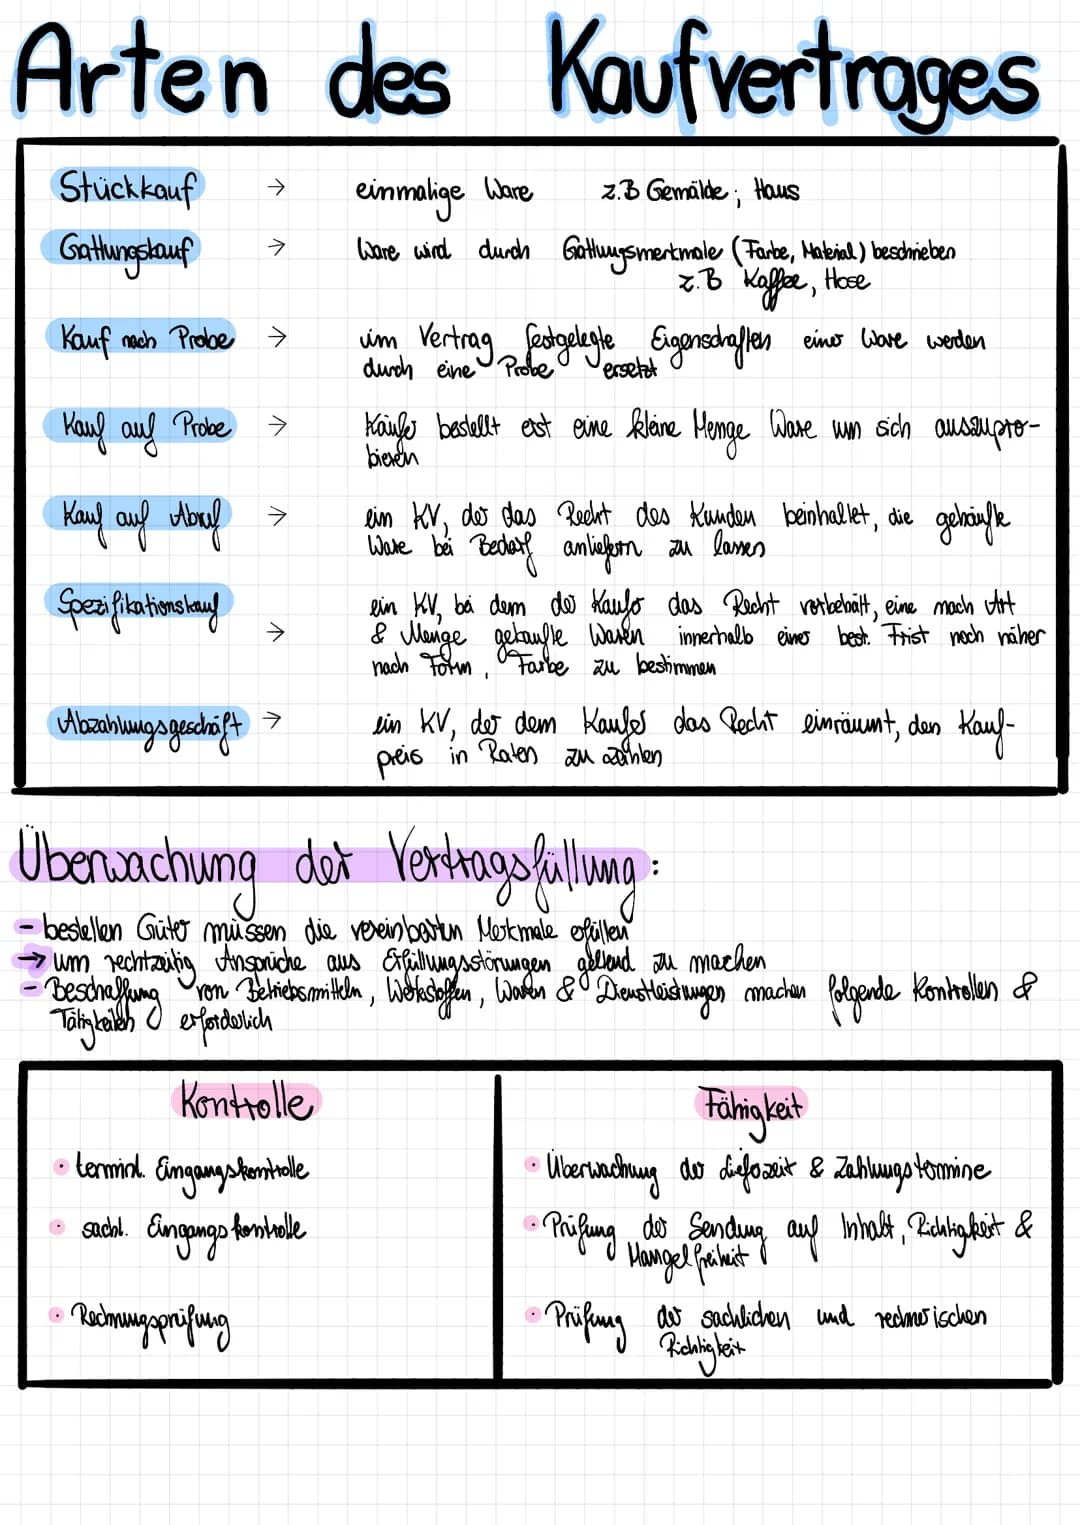 Arten des Kaufvertrages
Stückkauf → einmalige Ware z.B Gemälde; Haus
Gattungskauf → Ware wird durch Gattungsmerkmale (Farbe, Material) beschrieben
z.B Kaffee, Hose
Kauf nach Probe → im Vertrag festgelegte Eigenschaften einer Ware werden
durch eine Probe ersetzt
Kauf auf Probe → Käufer bestellt erst eine kleine Menge Ware um sich auszupro-
bieren
Kauf auf Abruf → ein KV, der das Recht des Kunden beinhaltet, die gekaufte
Ware bei Bedarf anliefern zu lassen
Spezifikationskauf → ein KV, bei dem der Käufer das Recht vorbehält, eine nach Art
& Menge gekaufte Waren innerhalb einer best. Frist noch näher
nach Form, Farbe zu bestimmen
Abzahlungsgeschäft → ein KV, der dem Käufer das Recht einräumt, den Kauf-
preis in Raten zu zahlen
Überwachung der Vertragsfüllung:
- bestellen Güter müssen die vereinbarten Merkmale erfüllen
→ um rechtzeitig Ansprüche aus Erfüllungsstörungen geltend zu machen
- Beschaffung von Betriebsmitteln, Werkstoffen, Waren & Dienstleistungen machen folgende Kontrollen &
Tätigkeiten erforderlich
Kontrolle
Fähigkeit
• terminl. Eingangskontrolle
• Überwachung der Lieferzeit & Zahlungstermine
• sachl. Eingangskontrolle
• Prüfung der Sendung auf Inhalt, Richtigkeit &
Mangelfreiheit
• Rechnungsprüfung
• Prüfung der sachlichen und rechnerischen
Richtigkeit